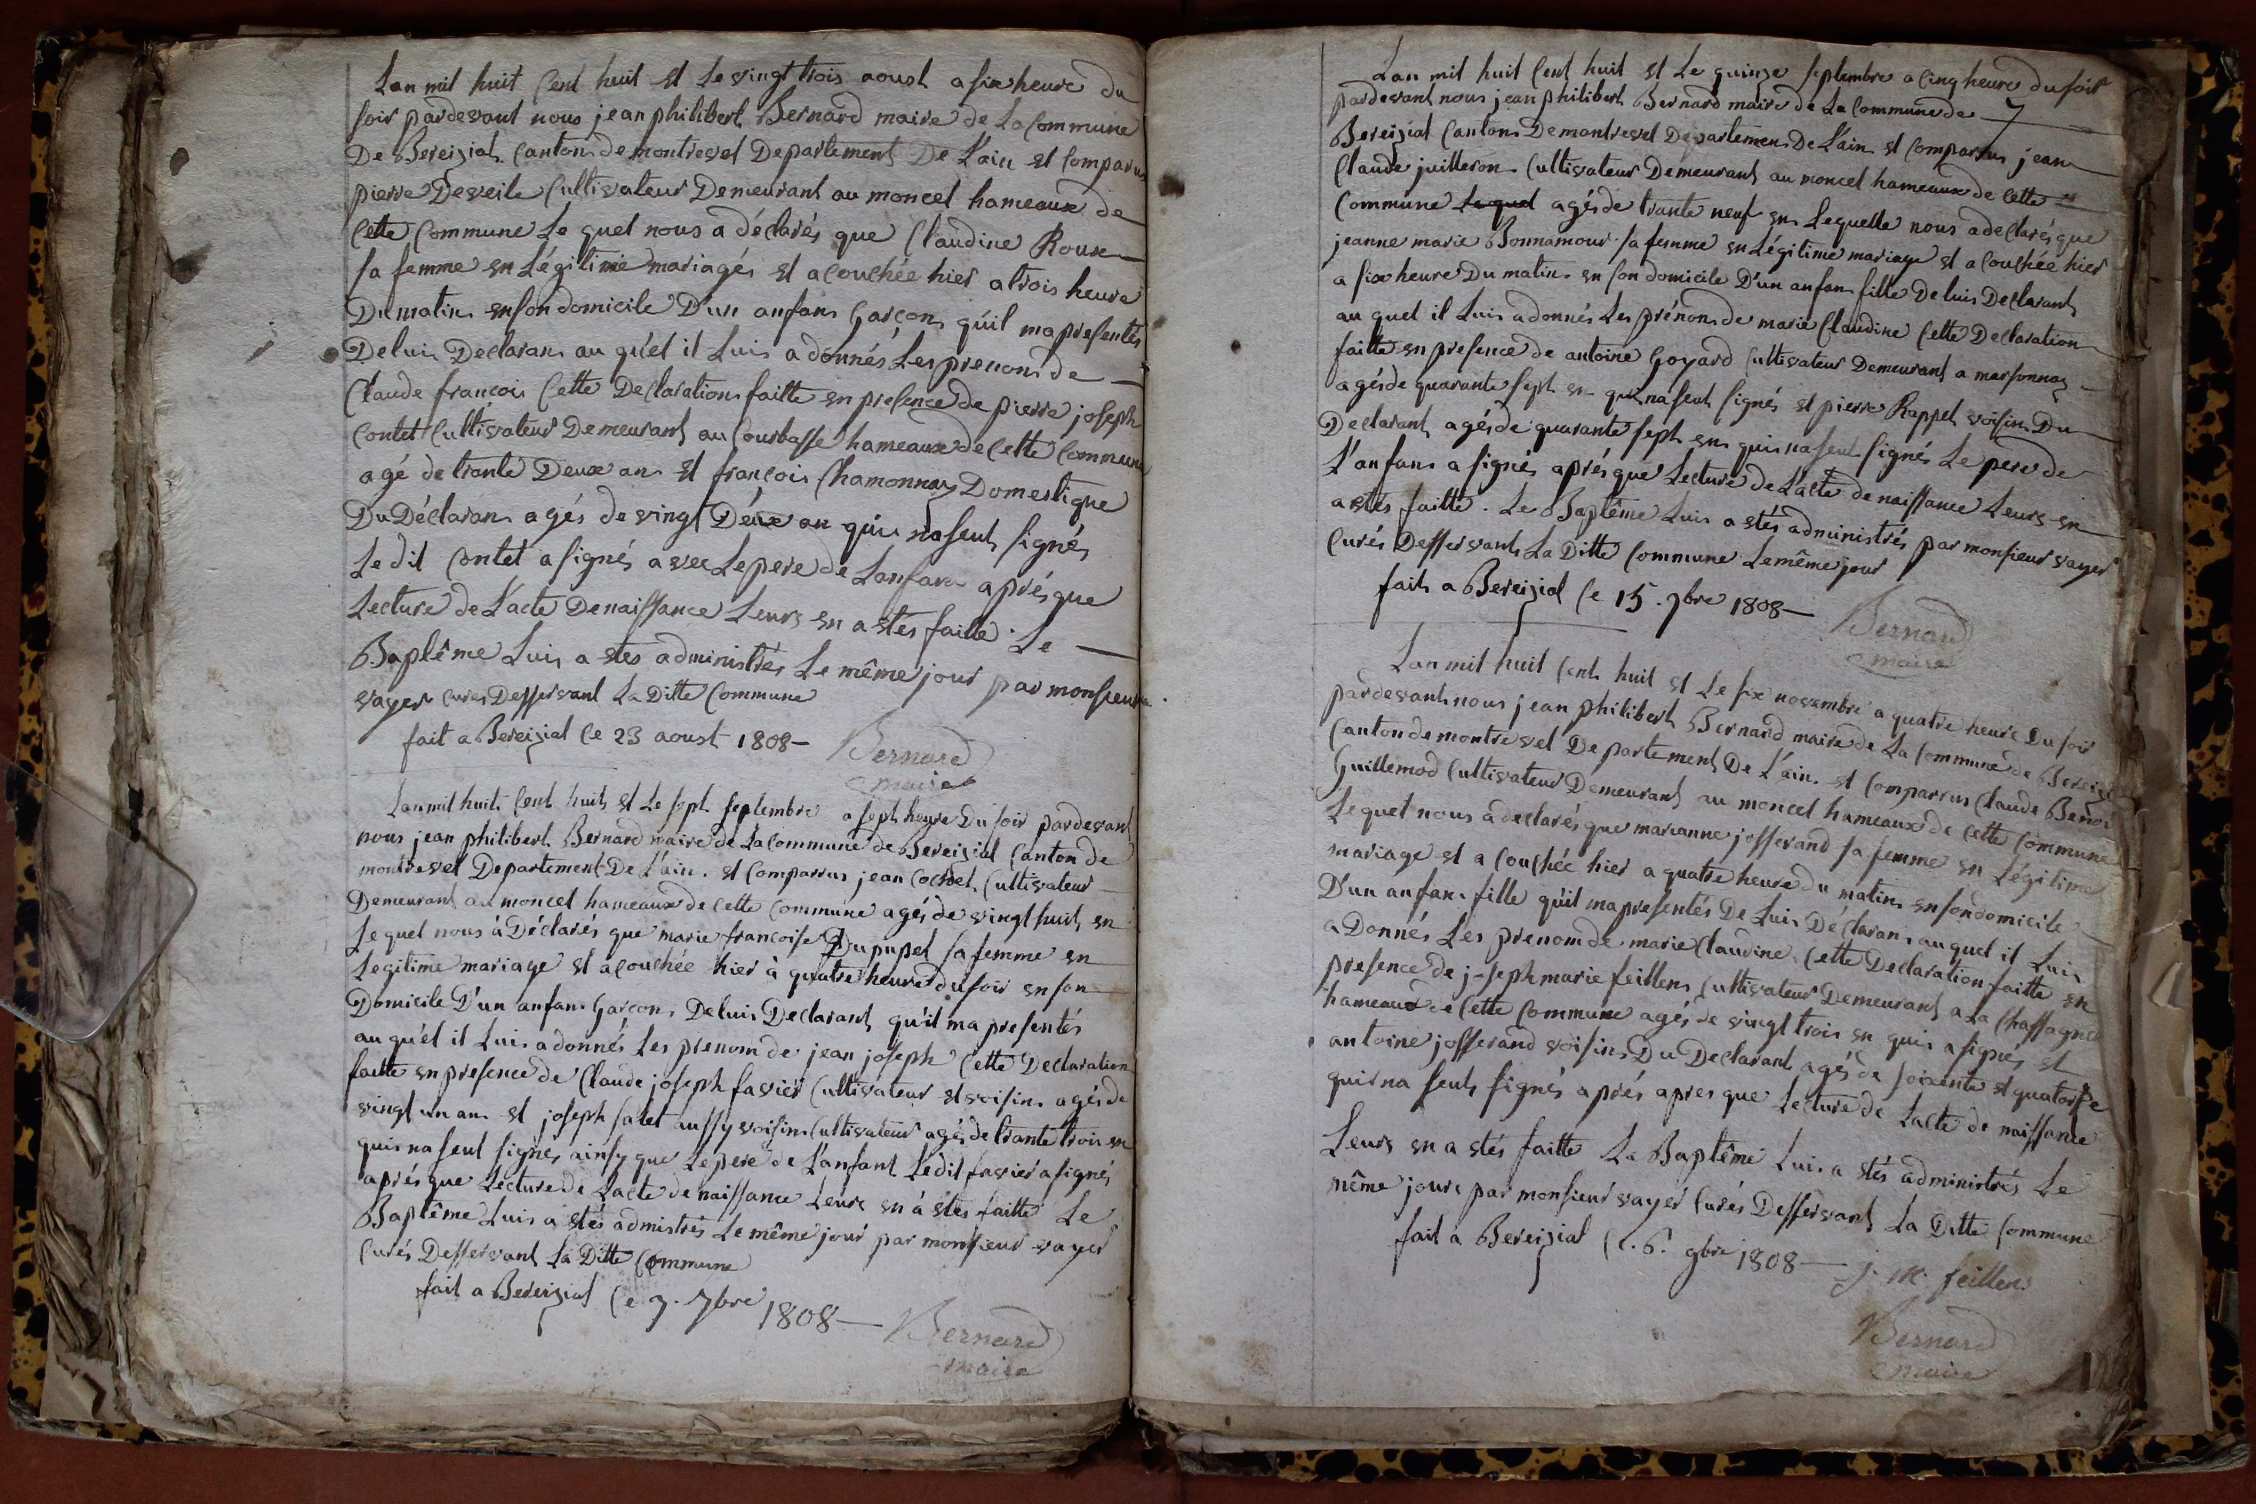 Lan mil huit Cent huit et Le vingt trois aoust a six heure du
soir pardevant nous jean philibert Bernard maire de La Commune
De Bereizial Canton de montrevel Departement De L'ain et Comparus
pierre Deveile Cultivateur Demeurant au moncel hameaux de
Cette Commune Le quel nous a déclarés que Claudine Roux
sa femme en Légitime mariagés et acouchée hier a trois heure
Du matin en son domicile D'un anfans Garçon qúil ma presentés
De luis Declarans au quél il Luis a donnés Les prenom de
Claude françois Cette Declaration faitte en presence de pierre joseph
Contet Cultivateur Demeurant au Courbasse hameaux de Cette Commune
agé de trante Deux ans et françois Chamonnay Domestique
Du Déclarans agés de vingt Déux an qúis naseut signés
Le dit Contet a signés avec Le pere de Lanfans aprés que
Lecture de L'acte De naissance Leurs en a etes faitte. Le
Baplême Luis a etes administrés Le même jour par monsieur
vayer cures Desservant La Ditte Commune
fait a Bereizial Ce 23 aoust 1808
Bernard
maire
Lan mil huit Cent huit et Le sept septembre a sept heure Du soir pardevant
nous jean philibert Bernard maire de La Commune de Bereizial Canton de
montrevel Departement De L'ain. et Comparrus jean Cochet Cultivateur
Demeurant au moncel hameaux de cette Commune agés de vingt huit en
Le quel nous à Déclarés que marie francoise Dupupet sa femme en
Legitime mariage et acouchée hier à quatre heure du soir en son
Domicile D'un anfans Garcon De luis Declarant qu'il ma presentés
au quél il Luis a donnés Les prenom de jean joseph Cette Declaration
faitte en presence de Claude joseph favier Cultivateur et voisin agés de
vingt un ans et joseph falet aussy voisin Cultivateur agés de trante trois en
quis naseut signes ainsy que Le pere de L'anfant Le dit favier a signés
aprés que Lecture de Lacte de naissance Leurs en à etes faitte Le
Baptême Luis a étés admistrés Le même jour par monsieur vayer
Curés Desservant La Ditte Commune
fait a Bereizial Ce 7. 7bre 1808
Bernard
maire
Lan mil huit Cent huit et Le quinze septembre a Cinq heure du soir
pardevant nous jean philibert Bernard maire de La Commune de
Bereizial Canton De montrevel Departement De L'ain et Comparrus jean
Claude juilleron Cultivateur Demeurant au moncel hameaux de Cette
Commune Le quel agés de trante neuf en Lequelle nous a declarés que
jeanne marie Bonnamour sa femme en Légitime mariage et acouchée hier
a six heure Du matin en son domicile D'un anfans fille De luis Declarant
au quel il Luis a donnés Les prénom de marie Claudine Cette Declaration
faitte en presence de antoine Goyard Cultivateur Demeurant a marsonnas
agés de quarante sept en quis naseut signés et pierre Rappet voisin Du
Declarant agés de quarante sept en quis naseut signés Le pere de
L'anfans a signés aprés que Lecture de L'acte de naissance Leurs en
a etés faitte. Le Baptême Luis a etés administrés par monsieur vayer
Curés Desservant La Ditte Commune Le même jour
fait a Bereizial Ce 15. 7bre 1808
Bernard
maire
Lan mil huit Cent huit et Le six novembre a quatre heure Du soir
pardevant nous jean philibert Bernard maire de La Commune de Bereizial
Canton de montrevel Departement De L'ain. et Comparrus Claude Benoi
Guillemod Cultivateur Demeurant au moncel hameaux de Cette Commune
Le quel nous a declarés que marianne josserand sa femme en Légitime
mariage et acouchée hier a quatre heure du matin en son domicile
D'un anfans fille qu'il ma presentés De Luis Déclarans au quel il Luis
a Donnés Les prenom de marie Claudine Cette Declaration faitte en
presence de joseph marie feillens Cultivateur Demeurant a La Chassagne
hameaux de Cette Commune agés de vingt trois en quis a signes et
antoine josserand voisin Du Declarant agés de soixente et quatorse
quis na seut signés aprés apres que Lecture de Lacte de naissance
Leurs en a etés faitte Le Baptême Luis a étés administrés Le
même jours par monsieur vayer Curés Desservant La Ditte Commune
fait a Bereizial Ce. 6. 9bre 1808
j. m. feillens
Bernard
maire